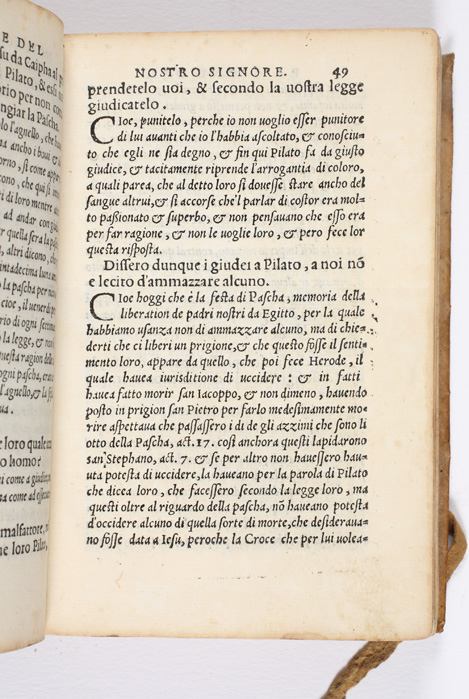 E DEL
su da Caipha al p
Pilato, & essi no
orio per non con
ngiar la Pascha.
lo l'agnello, che
NOSTRO SIGNORE. 49
prendetelo uoi, & secondo la uostra legge
giudicatelo.
CIoe, punitelo, perche io non uoglio esser punitore
di lui auanti che io l'habbia ascoltato, & conosciu=
to che egli ne sia degno, & fin qui Pilato fa da giusto
giudice, & tacitamente riprende l'arrogantia di coloro,
a quali parea, che al detto loro si douesse stare ancho del
sangue altrui, & si accorse ch'l parlar di costor era mol=
to passionato & superbo, & non pensauano che esso era
per far ragione, & non le uoglie loro, & pero fece lor
questa risposta.
Dissero dunque i giudei a Pilato, a noi nō
e lecito d'ammazzare alcuno.
CIoe hoggi che è la festa di Pascha, memoria della
liberation de padri nostri da Egitto, per la quale
habbiamo usanza non di ammazzare alcuno, ma di chie=
derti che ci liberi un prigione, & che questo fosse il senti=
mento loro, appare da quello, che poi fece Herode, il
quale hauea iurisditione di uccidere: & in fatti
hauea fatto morir san Iacoppo, & non dimeno, hauendo
posto in prigion san Pietro per farlo medesimamente mo=
rire aspettaua che passassero i di de gli azzimi che sono li
otto della Pascha, act. 17. cosi anchora questi lapidarono
san Stephano, act. 7. & se per altro non hauessero hau=
uta potesta di uccidere, la haueano per la parola di Pilato
che dicea loro, che facessero secondo la legge loro, ma
questi oltre al riguardo della pascha, nō haueano potesta
d'occidere alcuno di quella sorte di morte, che desideraua=
no fosse data a Iesu, peroche la Croce che per lui uolea=